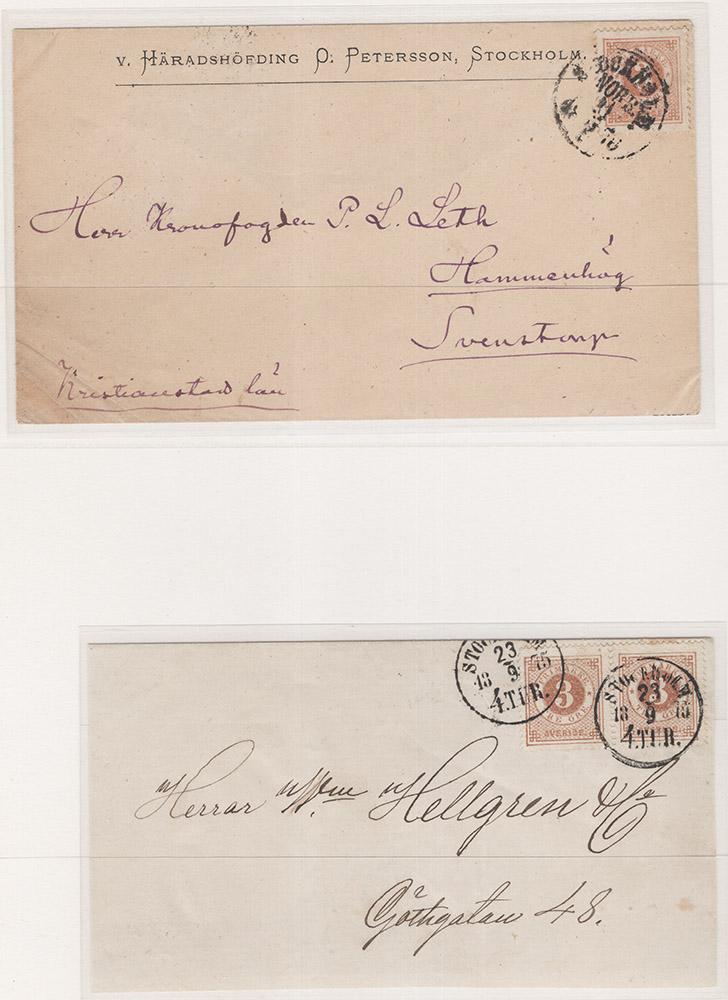 v. Häradshöfding O. Petersson, Stockholm.
NORR
Herr Kronofogden P. L. Leth
Hammenhög
Svenstorp
Kristianstad län
STOCKHOLM
23
18 9 75
4.TUR.
3
TRE ÖRE
SVERIGE.
STOCKHOLM
23
18 9 75
4.TUR.
3
Herrar Wm Hellgren & Co
Göthgatan 48.